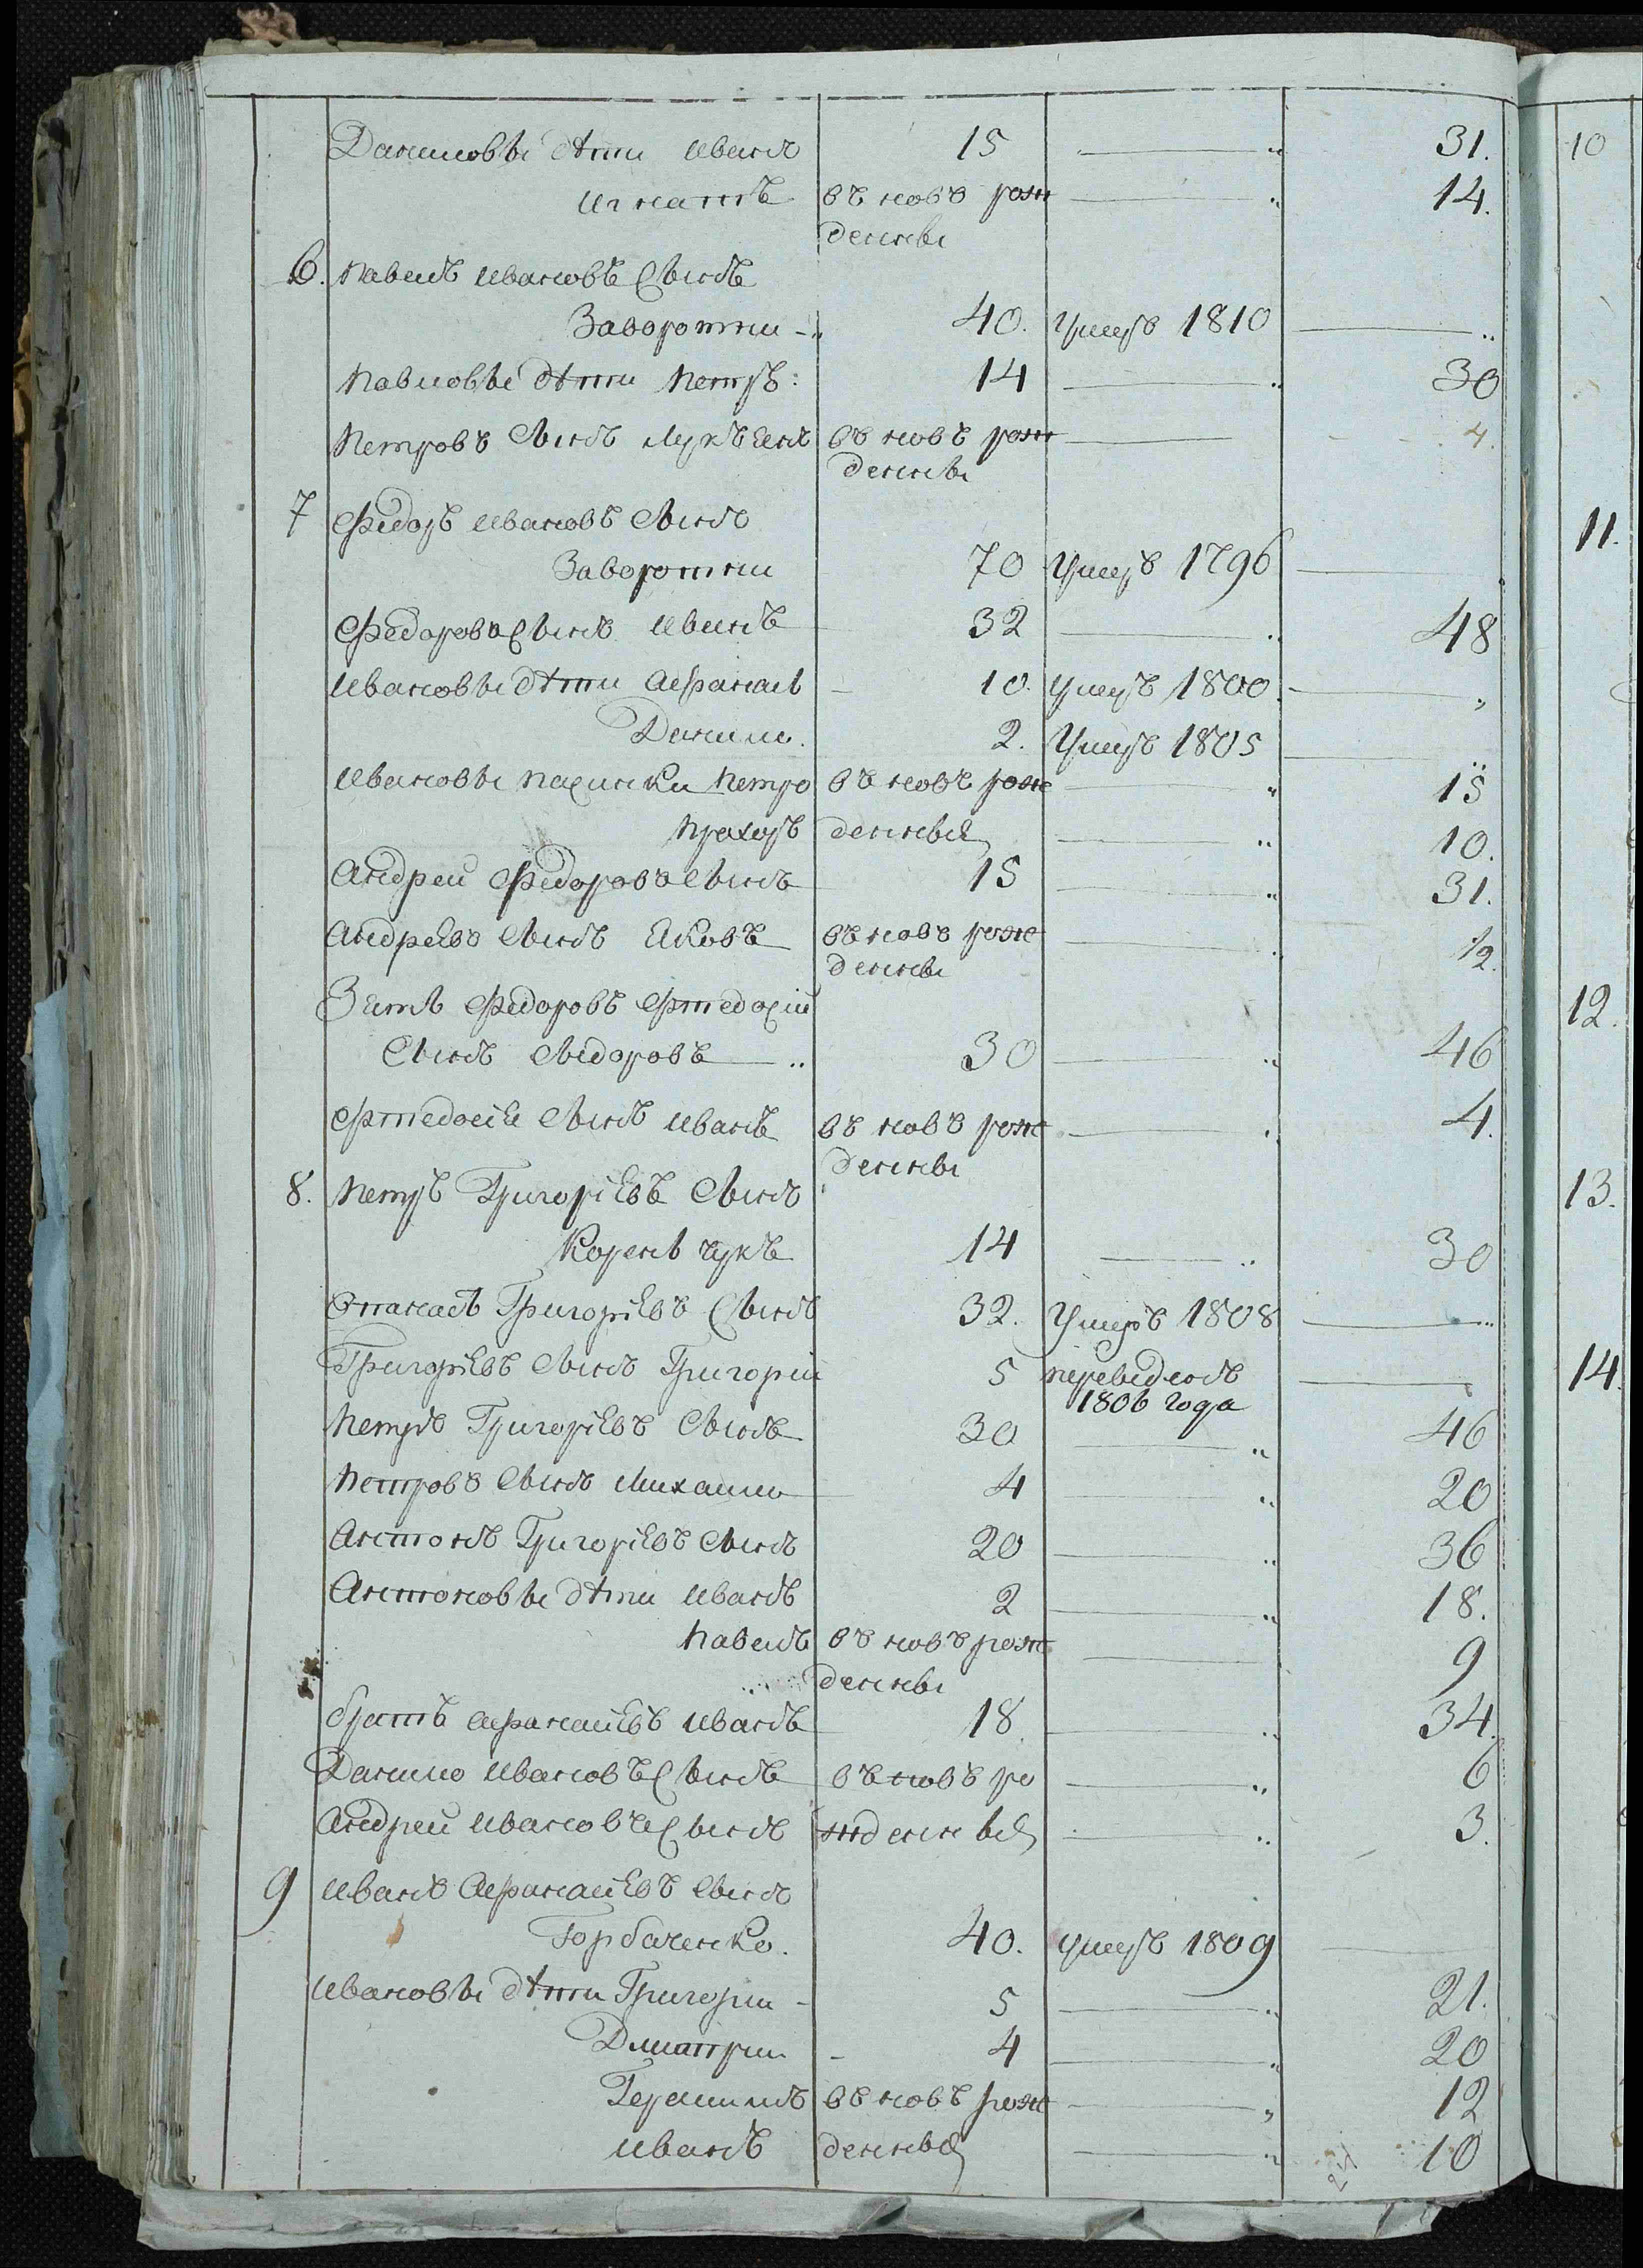 Даниловы дѣти Иванъ 15 31.
Игнатъ въ новъ рож 14.
денны
6. Павелъ Ивановъ Сынъ
Заворотни 40. Умеръ 1810
Павловы дѣти Петръ: 14 30
Петровъ Сынъ Лукъянъ въ новъ рож 4.
денны
7 Федоръ Ивановъ Сынъ
Заворотни 70 Умеръ 1796
Федоровъ Сынъ Иванъ 32 48
Ивановы дѣти Афанасъ 10. умеръ 1800
Данило. 2. Умеръ 1805
Ивановы пасинки Петро въ новъ рож 15
Прахоръ денныя 10.
Андреи Федоровъ Сынъ 15 31.
Андреевъ Сынъ Яковъ въ новъ рож 12.
денны
Зять Федоровъ Фтедосій
Сынъ Сидоровъ 30 46
Фтедосія Сынъ Иванъ въ новъ рож 4.
денны
8. Петръ Григоріевъ Сынъ
Корень чукъ 14 30
Григоріевъ Сынъ 32. Умеръ 1808
Григоріевъ Сынъ Григорій 5 переведенъ
1806 года
Петръ Григоріевъ Сынъ 30 46
Петровъ Сынъ Михаило 4 20
Антонъ Григоріевъ Сынъ 20 36
Антоновы дѣти Иванъ 2 18.
Павелъ въ новъ рож 9
денны
братъ Афанасіевъ Иванъ 18. 34.
Данило Ивановъ Сынъ въ новъ ро 6
Андреи Ивановъ Сынъ жденныя 3.
9 Иванъ Афанасіевъ Сынъ
Горбаченко. 40. умеръ 1809
Ивановы дѣти Григории 5 21.
Дмитрии 4 20
Герасимъ въ новъ рож 12
Иванъ денныя 10
10
11.
12.
13.
14.